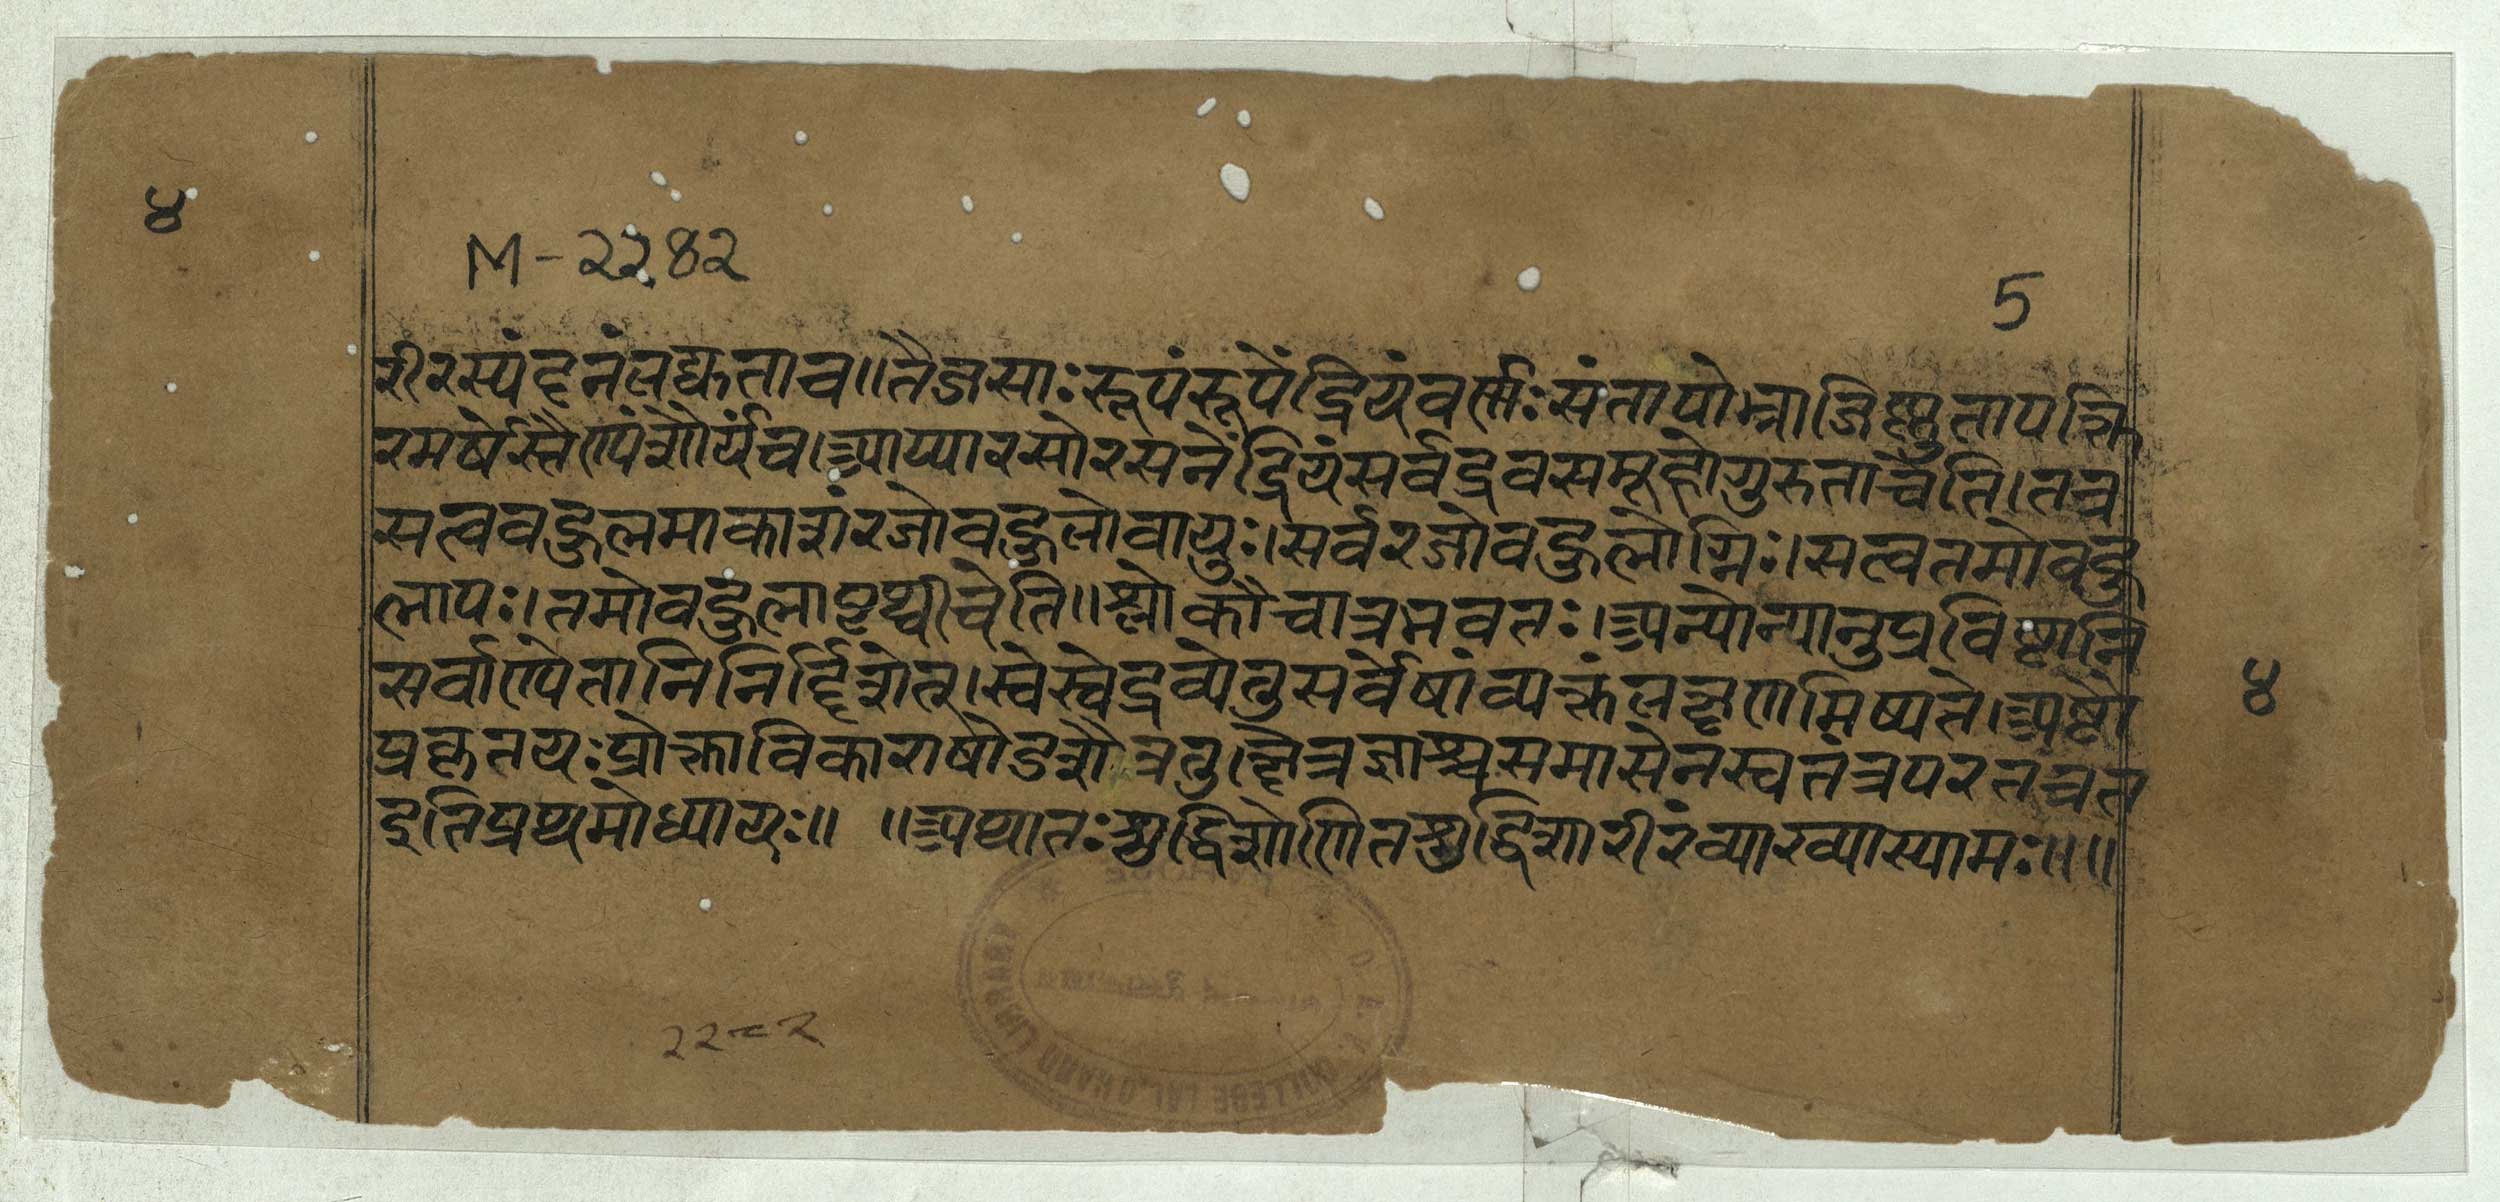 ४
M-2282
5
रीरस्पंदनंलघुताच॥तैजसाःरूपंरूपेंद्रियंवर्णःसंतापोभ्राजिष्णुतापक्ति
रमर्षस्तैण्यंशौर्यंच।आप्यारसोरसनेंद्रियंसर्वद्रवसमूहोगुरुताचेति।तत्र
सत्वबहुलमाकाशंरजोबहुलोवायुः।सर्वरजोबहुलोग्निः।सत्वतमोबहु
लापः।तमोबहुलापृथ्वीचेति॥श्लोकौचात्रभवतः।अन्योन्यानुप्रविष्टानि
सर्वाण्येतानिनिर्द्दिशेत्।स्वेस्वेद्रव्येतुसर्वेषांव्यक्तंलक्षणमिष्यते।अष्टौ
४
प्रकृतयःप्रोक्ताविकाराषोडशैवतु।क्षेत्रज्ञाश्चसमासेनस्वतंत्रपरतन्त्रत
इतिप्रथमोध्यायः॥ ॥अथातःशुद्धिशोणितशुद्धिशारीरंव्याख्यास्यामः॥॥
COLLEGE LAL CHAND LIBRARY